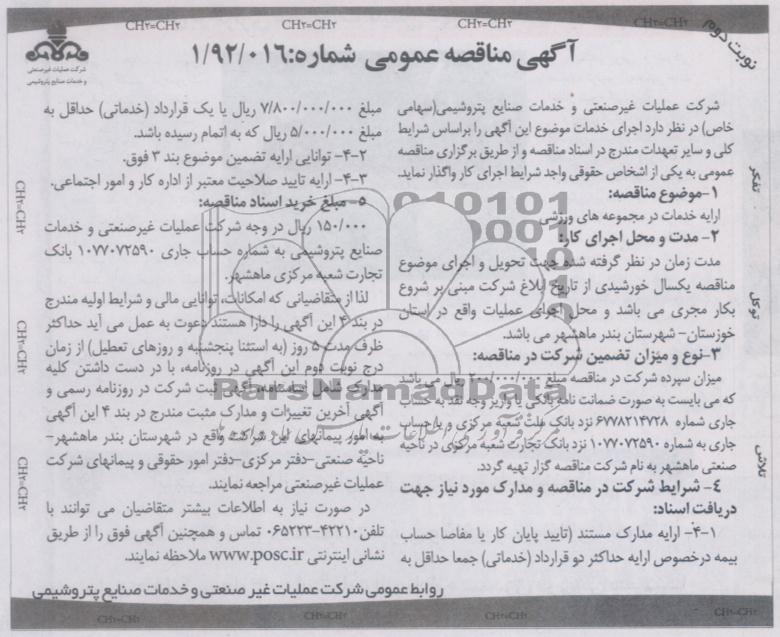 CH۲=CH۲
CH۲=CH۲
CH۲=CH۲
CH۲=CH۲
نوبت دوم
شرکت عملیات غیرصنعتی
و خدمات صنایع پتروشیمی
آگهی مناقصه عمومی شماره:۱/۹۲/۰۱۶
شرکت عملیات غیرصنعتی و خدمات صنایع پتروشیمی(سهامی
خاص) در نظر دارد اجرای خدمات موضوع این آگهی را براساس شرایط
کلی و سایر تعهدات مندرج در اسناد مناقصه و از طریق برگزاری مناقصه
عمومی به یکی از اشخاص حقوقی واجد شرایط اجرای کار واگذار نماید.
۱-موضوع مناقصه:
ارایه خدمات در مجموعه های ورزشی
۲- مدت و محل اجرای کار:
مدت زمان در نظر گرفته شده جهت تحویل و اجرای موضوع
مناقصه یکسال خورشیدی از تاریخ ابلاغ شرکت مبنی بر شروع
بکار مجری می باشد و محل اجرای عملیات واقع در استان
خوزستان- شهرستان بندر ماهشهر می باشد.
۳-نوع و میزان تضمین شرکت در مناقصه:
میزان سپرده شرکت در مناقصه مبلغ ریال می باشد
که می بایست به صورت ضمانت نامه بانکی یا واریز وجه نقد به حساب
جاری شماره ۶۷۷۸۲۱۴۷۲۸ نزد بانک ملت شعبه مرکزی و یا حساب
جاری به شماره ۱۰۷۷۰۷۲۵۹۰ نزد بانک تجارت شعبه مرکزی در ناحیه
صنعتی ماهشهر به نام شرکت مناقصه گزار تهیه گردد.
۴- شرایط شرکت در مناقصه و مدارک مورد نیاز جهت
دریافت اسناد:
۴-۱- ارایه مدارک مستند (تایید پایان کار یا مفاصا حساب
بیمه درخصوص ارایه حداکثر دو قرارداد (خدماتی) جمعا حداقل به
مبلغ ۷/۸۰۰/۰۰۰/۰۰۰ ریال یا یک قرارداد (خدماتی) حداقل به
مبلغ ۵/۰۰۰/۰۰۰/۰۰۰ ریال که به اتمام رسیده باشد.
۴-۲- توانایی ارایه تضمین موضوع بند ۳ فوق.
۴-۳- ارایه تایید صلاحیت معتبر از اداره کار و امور اجتماعی.
۵- مبلغ خرید اسناد مناقصه:
۱۵۰/۰۰۰ ریال در وجه شرکت عملیات غیرصنعتی و خدمات
صنایع پتروشیمی به شماره حساب جاری ۱۰۷۷۰۷۲۵۹۰ بانک
تجارت شعبه مرکزی ماهشهر.
لذا از متقاضیانی که امکانات، توانایی مالی و شرایط اولیه مندرج
در بند ۴ این آگهی را دارا هستند دعوت به عمل می آید حداکثر
ظرف مدت ۵ روز (به استثنا پنجشنبه و روزهای تعطیل) از زمان
درج نوبت دوم این آگهی در روزنامه، با در دست داشتن کلیه
مدارک شامل اساسنامه، آگهی ثبت شرکت در روزنامه رسمی و
آگهی آخرین تغییرات و مدارک مثبت مندرج در بند ۴ این آگهی
به امور پیمانهای این شرکت واقع در شهرستان بندر ماهشهر-
ناحیه صنعتی-دفتر مرکزی-دفتر امور حقوقی و پیمانهای شرکت
عملیات غیرصنعتی مراجعه نمایند.
در صورت نیاز به اطلاعات بیشتر متقاضیان می توانند با
تلفن ۴۲۲۱۰-۰۶۵۲۲۳ تماس و همچنین آگهی فوق را از طریق
نشانی اینترنتی www.posc.ir ملاحظه نمایند.
روابط عمومی شرکت عملیات غیر صنعتی و خدمات صنایع پتروشیمی
تفکر
توکل
تلاش
CH۲=CH۲
CH۲=CH۲
CH۲=CH۲
CH۲=CH۲
CH۲=CH۲
CH۲=CH۲
CH۲=CH۲
ParsNamadData